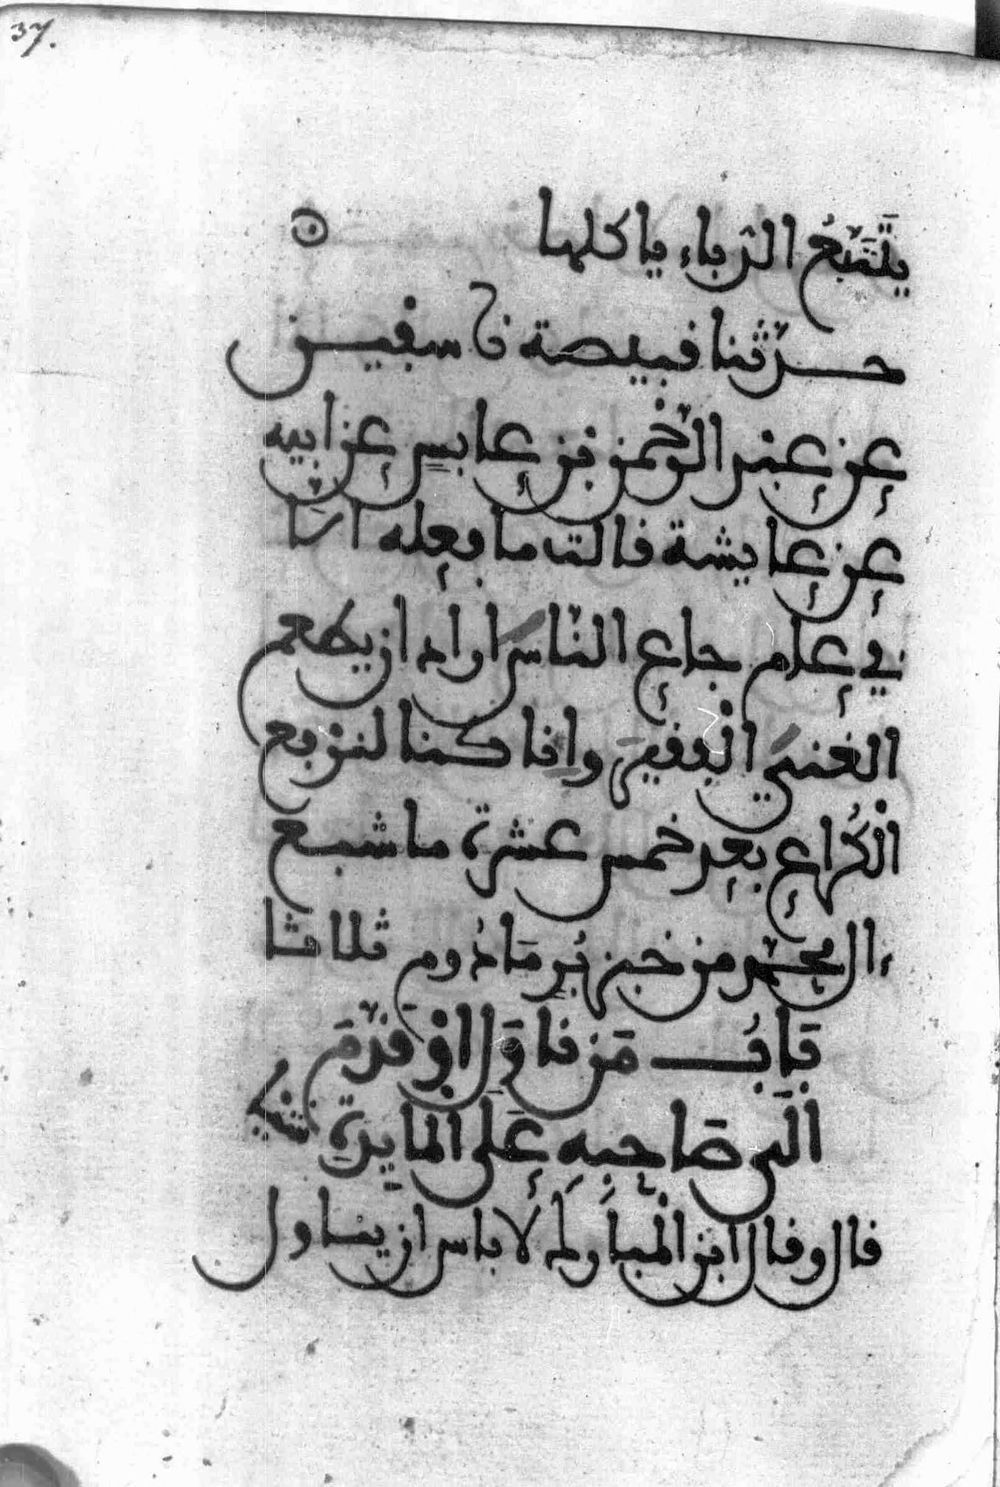 37.
يَتَتَبَّعُ الدُّبَّاء ياكلها
حدّثنا قبيصة نا سفيـن
عن عبد الرحمن بن عابس عن ابيه
عن عايشة قالت ما فعله الا
في عام جاع الناس اراد ان يطعم
الغنيّ الفقيرَ وإن كنا لنرفع
الْكُراع بعد خمس عشرة ما شبع
ءال محمّد من خبز بُرٍّ مَادُوم ثلاثا
بَابُ مَن نَاوَلَ اوْ قدّمَ
الَى صَاحِبِهِ عَلَى المايدَةِ شَيْئا
قال وقال ابن المبارك لا باس ان يناول